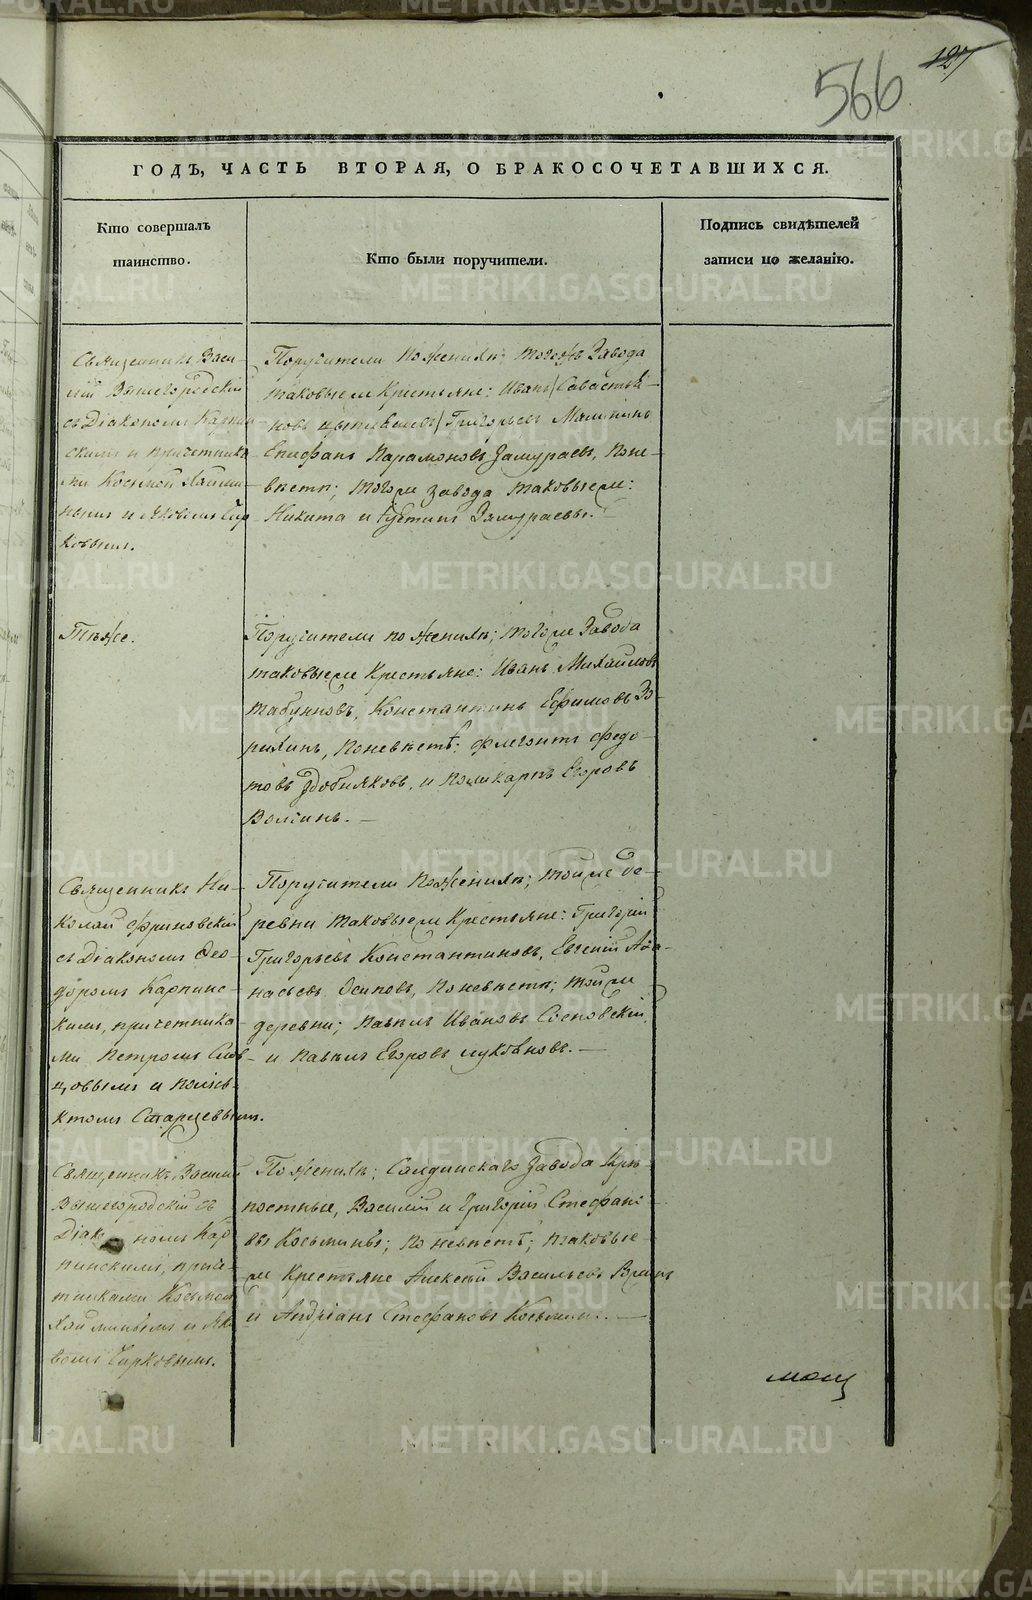 127
566
ГОДЪ, ЧАСТЬ ВТОРАЯ, О БРАКОСОЧЕТАВШИХСЯ.
Кто совершалъ
таинство.
Кто были поручители.
Подпись свидѣтелей
записи по желанію.
Священникъ Васи-
лій Вышегородскій
съ Діакономъ Карпин
скимъ и причетника
ми Космой Хлми-
нымъ и Яковомъ Чир
ковымъ.
Поручители по женихѣ: тогожъ Завода
таковыеже Крестьяне: Иванъ Савастья-
новъ Григорьевъ Мялкинъ
Епифанъ Парамоновъ Замураевъ, По не-
вѣстѣ; тогоже завода таковыеже:
Никита и Густинъ Замураевы. —
Тѣже.
Поручители по женихѣ; тогоже Завода
таковыеже Крестьяне: Иванъ Михайловъ
Табунновъ, Константинъ Ефимовъ Зо-
рихинъ, по невѣстѣ: Флегонтъ Федо-
товъ Здобняковъ, и Поликарпъ Егоровъ
Волгинъ. —
Священникъ Ни-
колай Флориновскій
съ Діакономъ Фео-
доромъ Карпинс-
кимъ, причетника-
ми Петромъ Слов-
цовымъ и Полиев-
ктомъ Старцевымъ.
Поручители по женихѣ; тойже де-
ревни таковыеже Крестьяне: Григорій
Григорьевъ Константиновъ, Евгеній Афа-
насьевъ Осиповъ, по невѣстѣ; тойже
деревни; Павелъ Ивановъ Сосновскій,
и Павелъ Егоровъ Луковновъ. —
Священникъ Василій
Вышегородскій съ
Діакономъ Кар
пинскимъ, приче-
тниками Космой
и Яко
вомъ Чирковымъ.
По женихѣ; Салдинскаго Завода Крѣ-
постные, Василій и Григорій Стефано-
вы Косьмины; по невѣстѣ; таковые-
же Крестьяне Алексѣй Васильевъ
и Андріанъ Стефановъ Косьминъ. —
METRIKI.GASO-URAL.RU